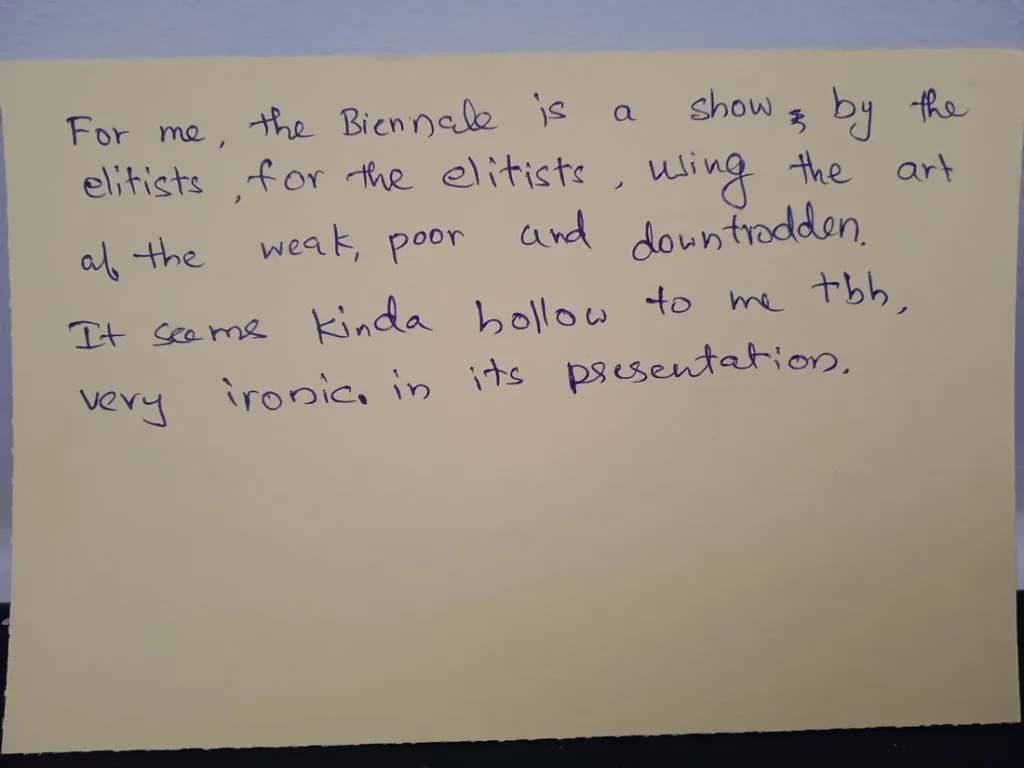 For me, the Biennale is a show, by the
elitists, for the elitists, using the art
of the weak, poor and downtrodden.
It seems kinda hollow to me tbh,
very ironic. in its presentation.